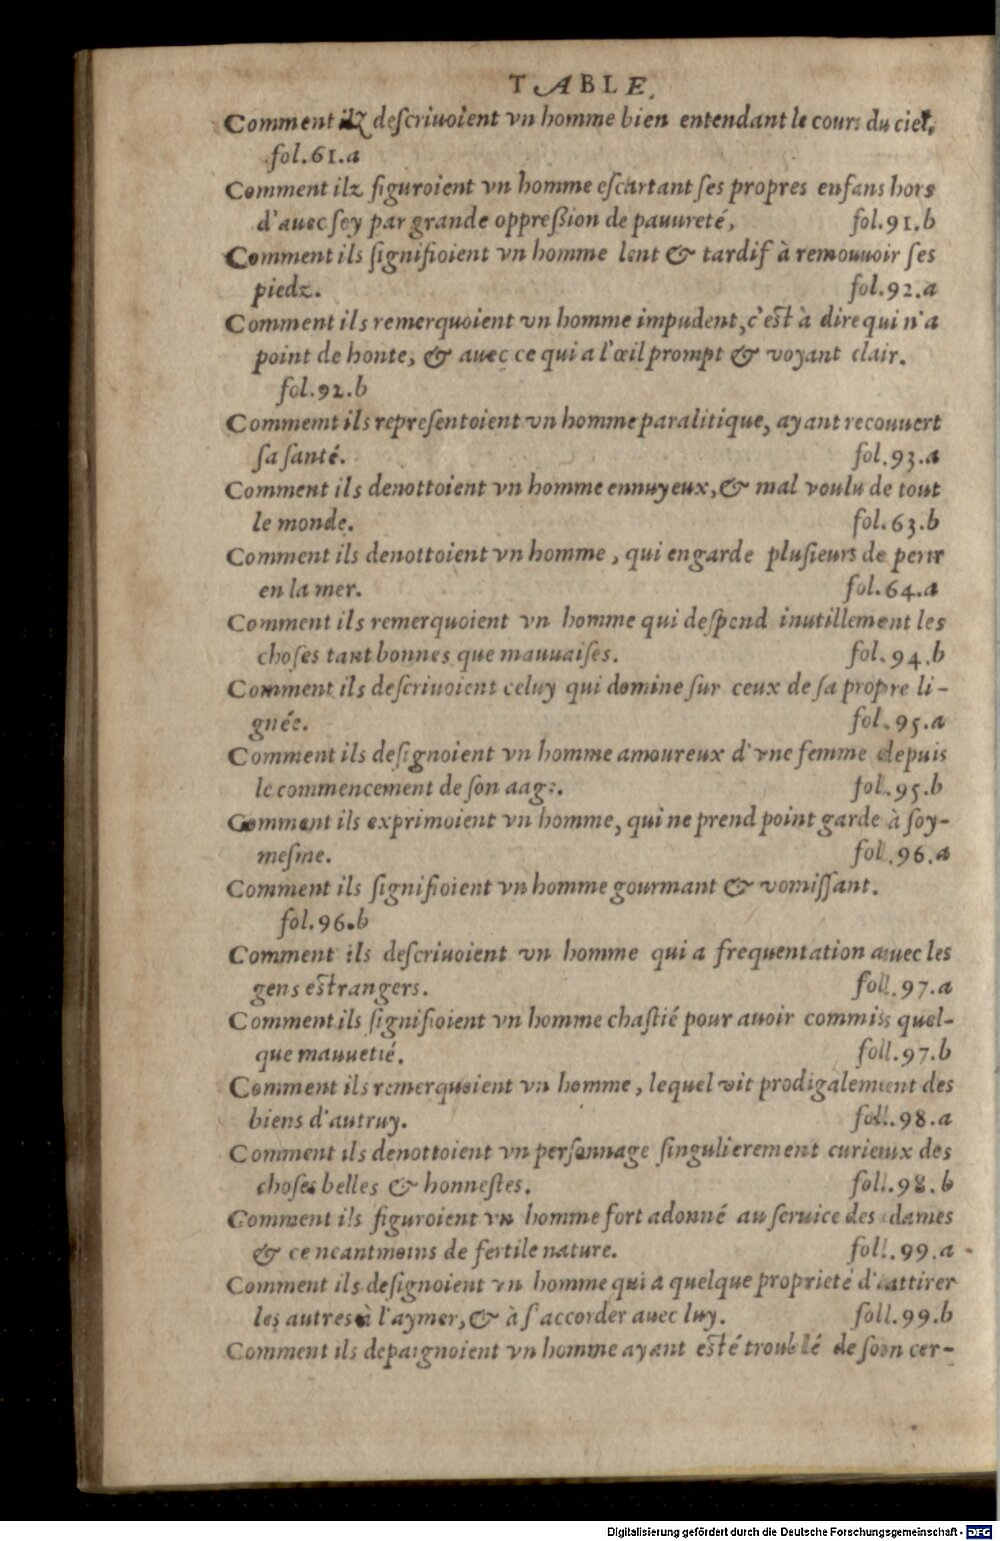 TABLE.
Comment ilz descriuoient vn homme bien entendant le cours du ciel,
fol.61.a
Comment ilz figuroient vn homme escartant ses propres enfans hors
d'auec soy par grande oppreßion de pauureté, fol.91.b
Comment ils signifioient vn homme lent & tardif à remouuoir ses
piedz. fol.92.a
Comment ils remerquoient vn homme impudent, c'est à dire qui n'a
point de honte, & auec ce qui a l'œil prompt & voyant clair.
fol.92.b
Commemt ils representoient vn homme paralitique, ayant recouuert
sa santé. fol.93.a
Comment ils denottoient vn homme ennuyeux, & mal voulu de tout
le monde. fol.63.b
Comment ils denottoient vn homme, qui engarde plusieurs de perir
en la mer. fol.64.a
Comment ils remerquoient vn homme qui despend inutillement les
choses tant bonnes que mauuaises. fol.94.b
Comment ils descriuoient celuy qui domine sur ceux de sa propre li-
gnée. fol.95.a
Comment ils designoient vn homme amoureux d'vne femme depuis
le commencement de son aage. fol.95.b
Comment ils exprimoient vn homme, qui ne prend point garde à soy-
mesme. fol.96.a
Comment ils signifioient vn homme gourmant & vomissant.
fol.96.b
Comment ils descriuoient vn homme qui a frequentation auec les
gens estrangers. foll.97.a
Comment ils signifioient vn homme chastié pour auoir commis quel-
que mauuetié. foll.97.b
Comment ils remerquoient vn homme, lequel vit prodigalement des
biens d'autruy. foll.98.a
Comment ils denottoient vn personnage singulierement curieux des
choses belles & honnestes. foll.98.b
Comment ils figuroient vn homme fort adonné au seruice des dames
& ce neantmoins de fertile nature. foll.99.a
Comment ils designoient vn homme qui a quelque proprieté d'attirer
les autres à l'aymer, & à s'accorder auec luy. foll.99.b
Comment ils depaignoient vn homme ayant esté troublé de soin cer-
Digitalisierung gefördert durch die Deutsche Forschungsgemeinschaft - DFG